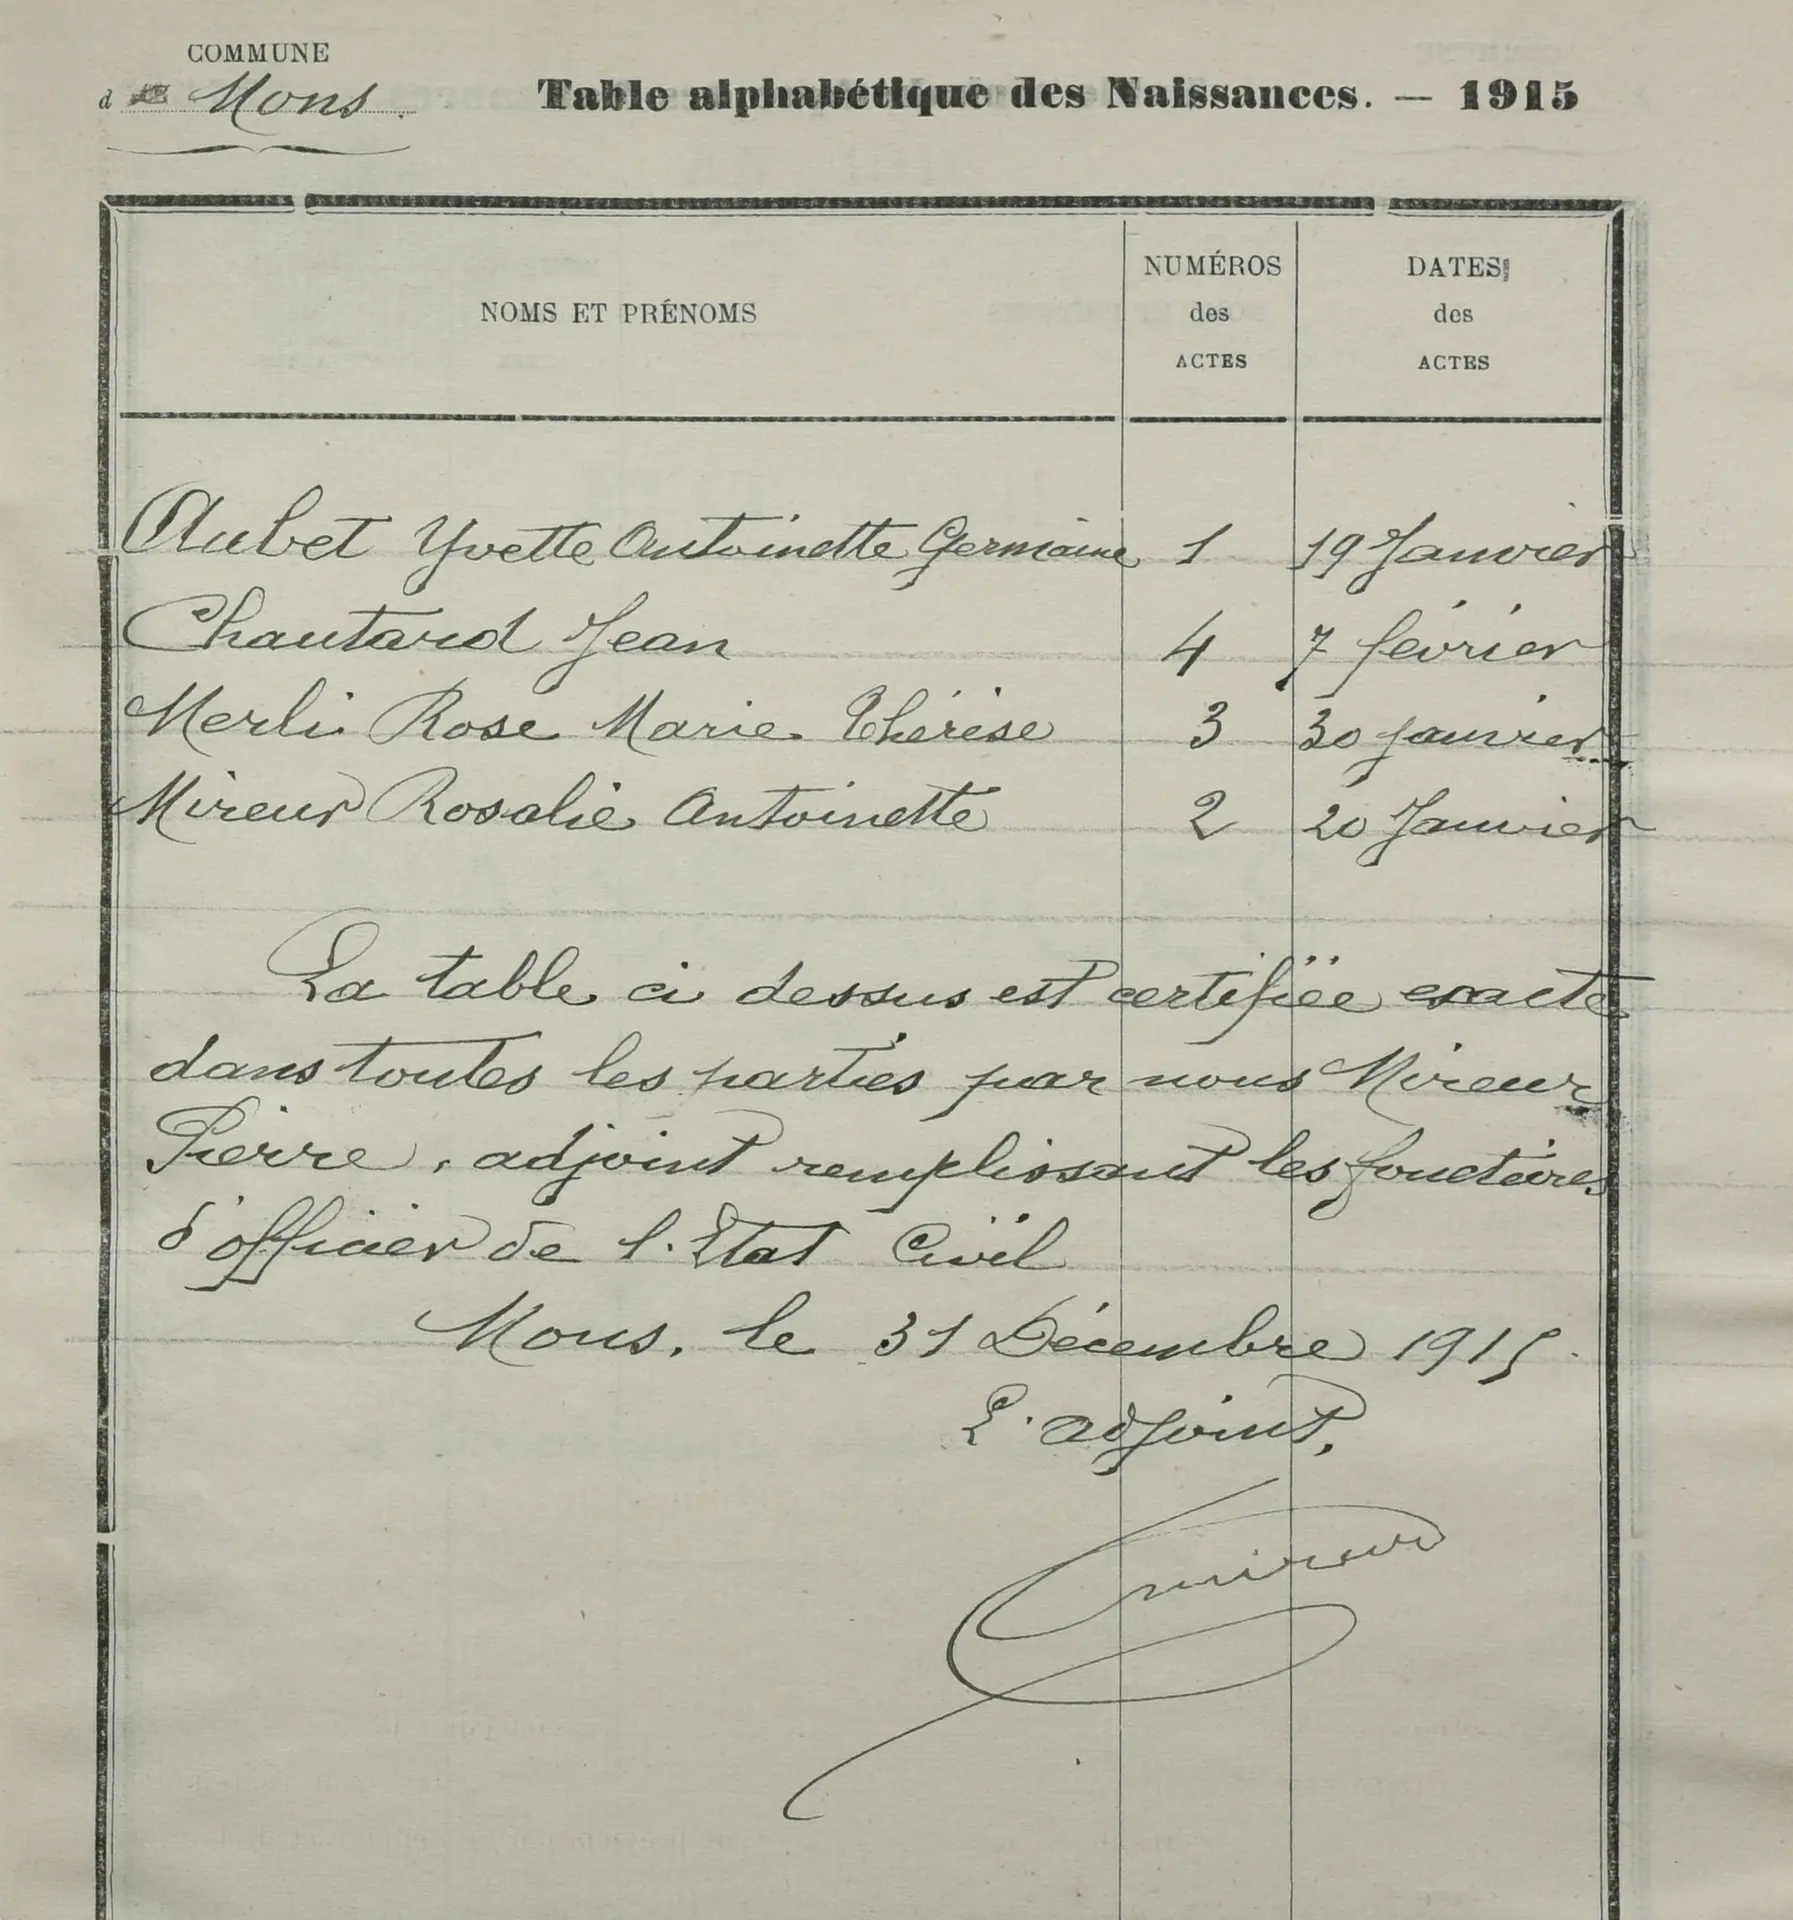 COMMUNE
d Mons
Table alphabétique des Naissances. — 1915
NOMS ET PRÉNOMS
NUMÉROS
des
ACTES
DATES
des
ACTES
Aubet Yvette Antoinette Germaine 1 19 Janvier
Chautard Jean 4 7 février
Merli Rose Marie Thérèse 3 30 janvier
Mireur Rosalie Antoinette 2 20 Janvier
La table ci dessus est certifiée exacte
dans toutes les parties par nous Mireur
Pierre, adjoint remplissant les fonctions
d'officier de l'Etat Civil
Mons, le 31 Décembre 1915.
L'adjoint,
Mireur